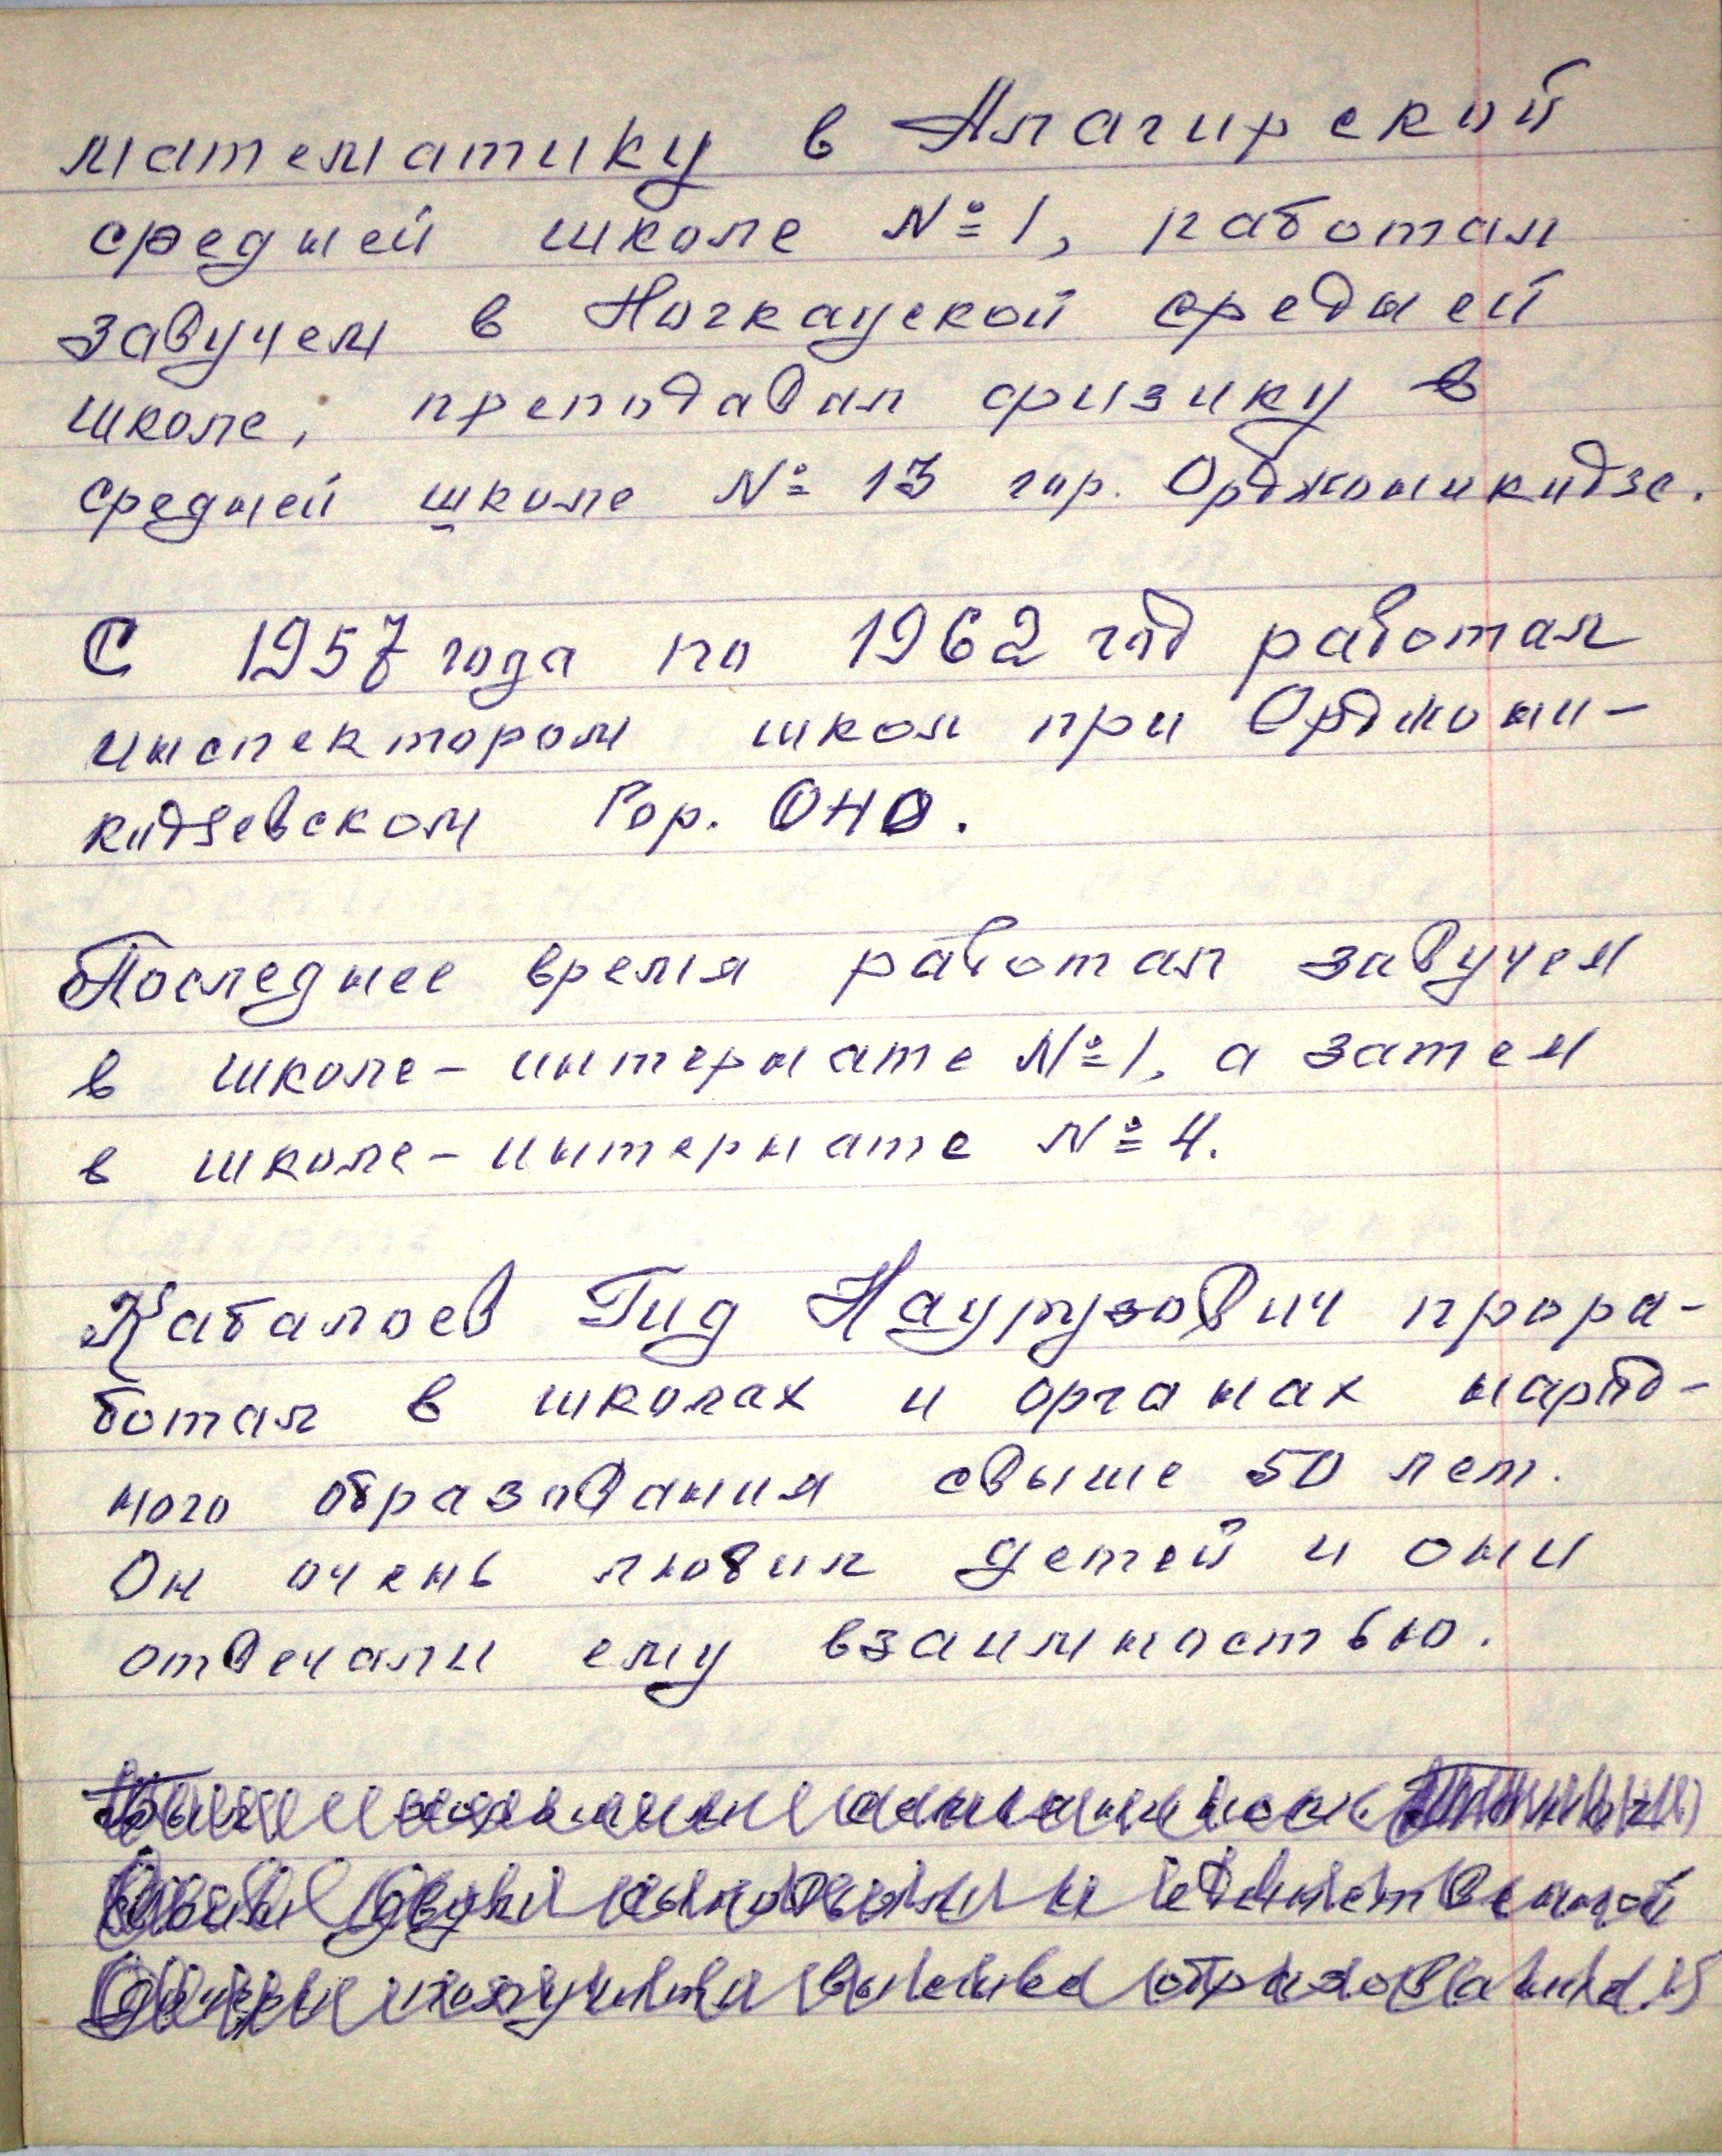 математику в Алагирской
средней школе № 1, работал
завучем в Ногкауской средней
школе, преподавал физику в
средней школе № 13 гор. Орджоникидзе.
С 1957 года по 1962 год работал
инспектором школ при Орджони-
кидзевском Гор. ОНО.
Последнее время работал завучем
в школе-интернате № 1, а затем
в школе-интернате № 4.
Кабалоев Гид Наурузович прора-
ботал в школах и органах народ-
ного образования свыше 50 лет.
Он очень любил детей и они
отвечали ему взаимностью.
единственной
получить высшее образование